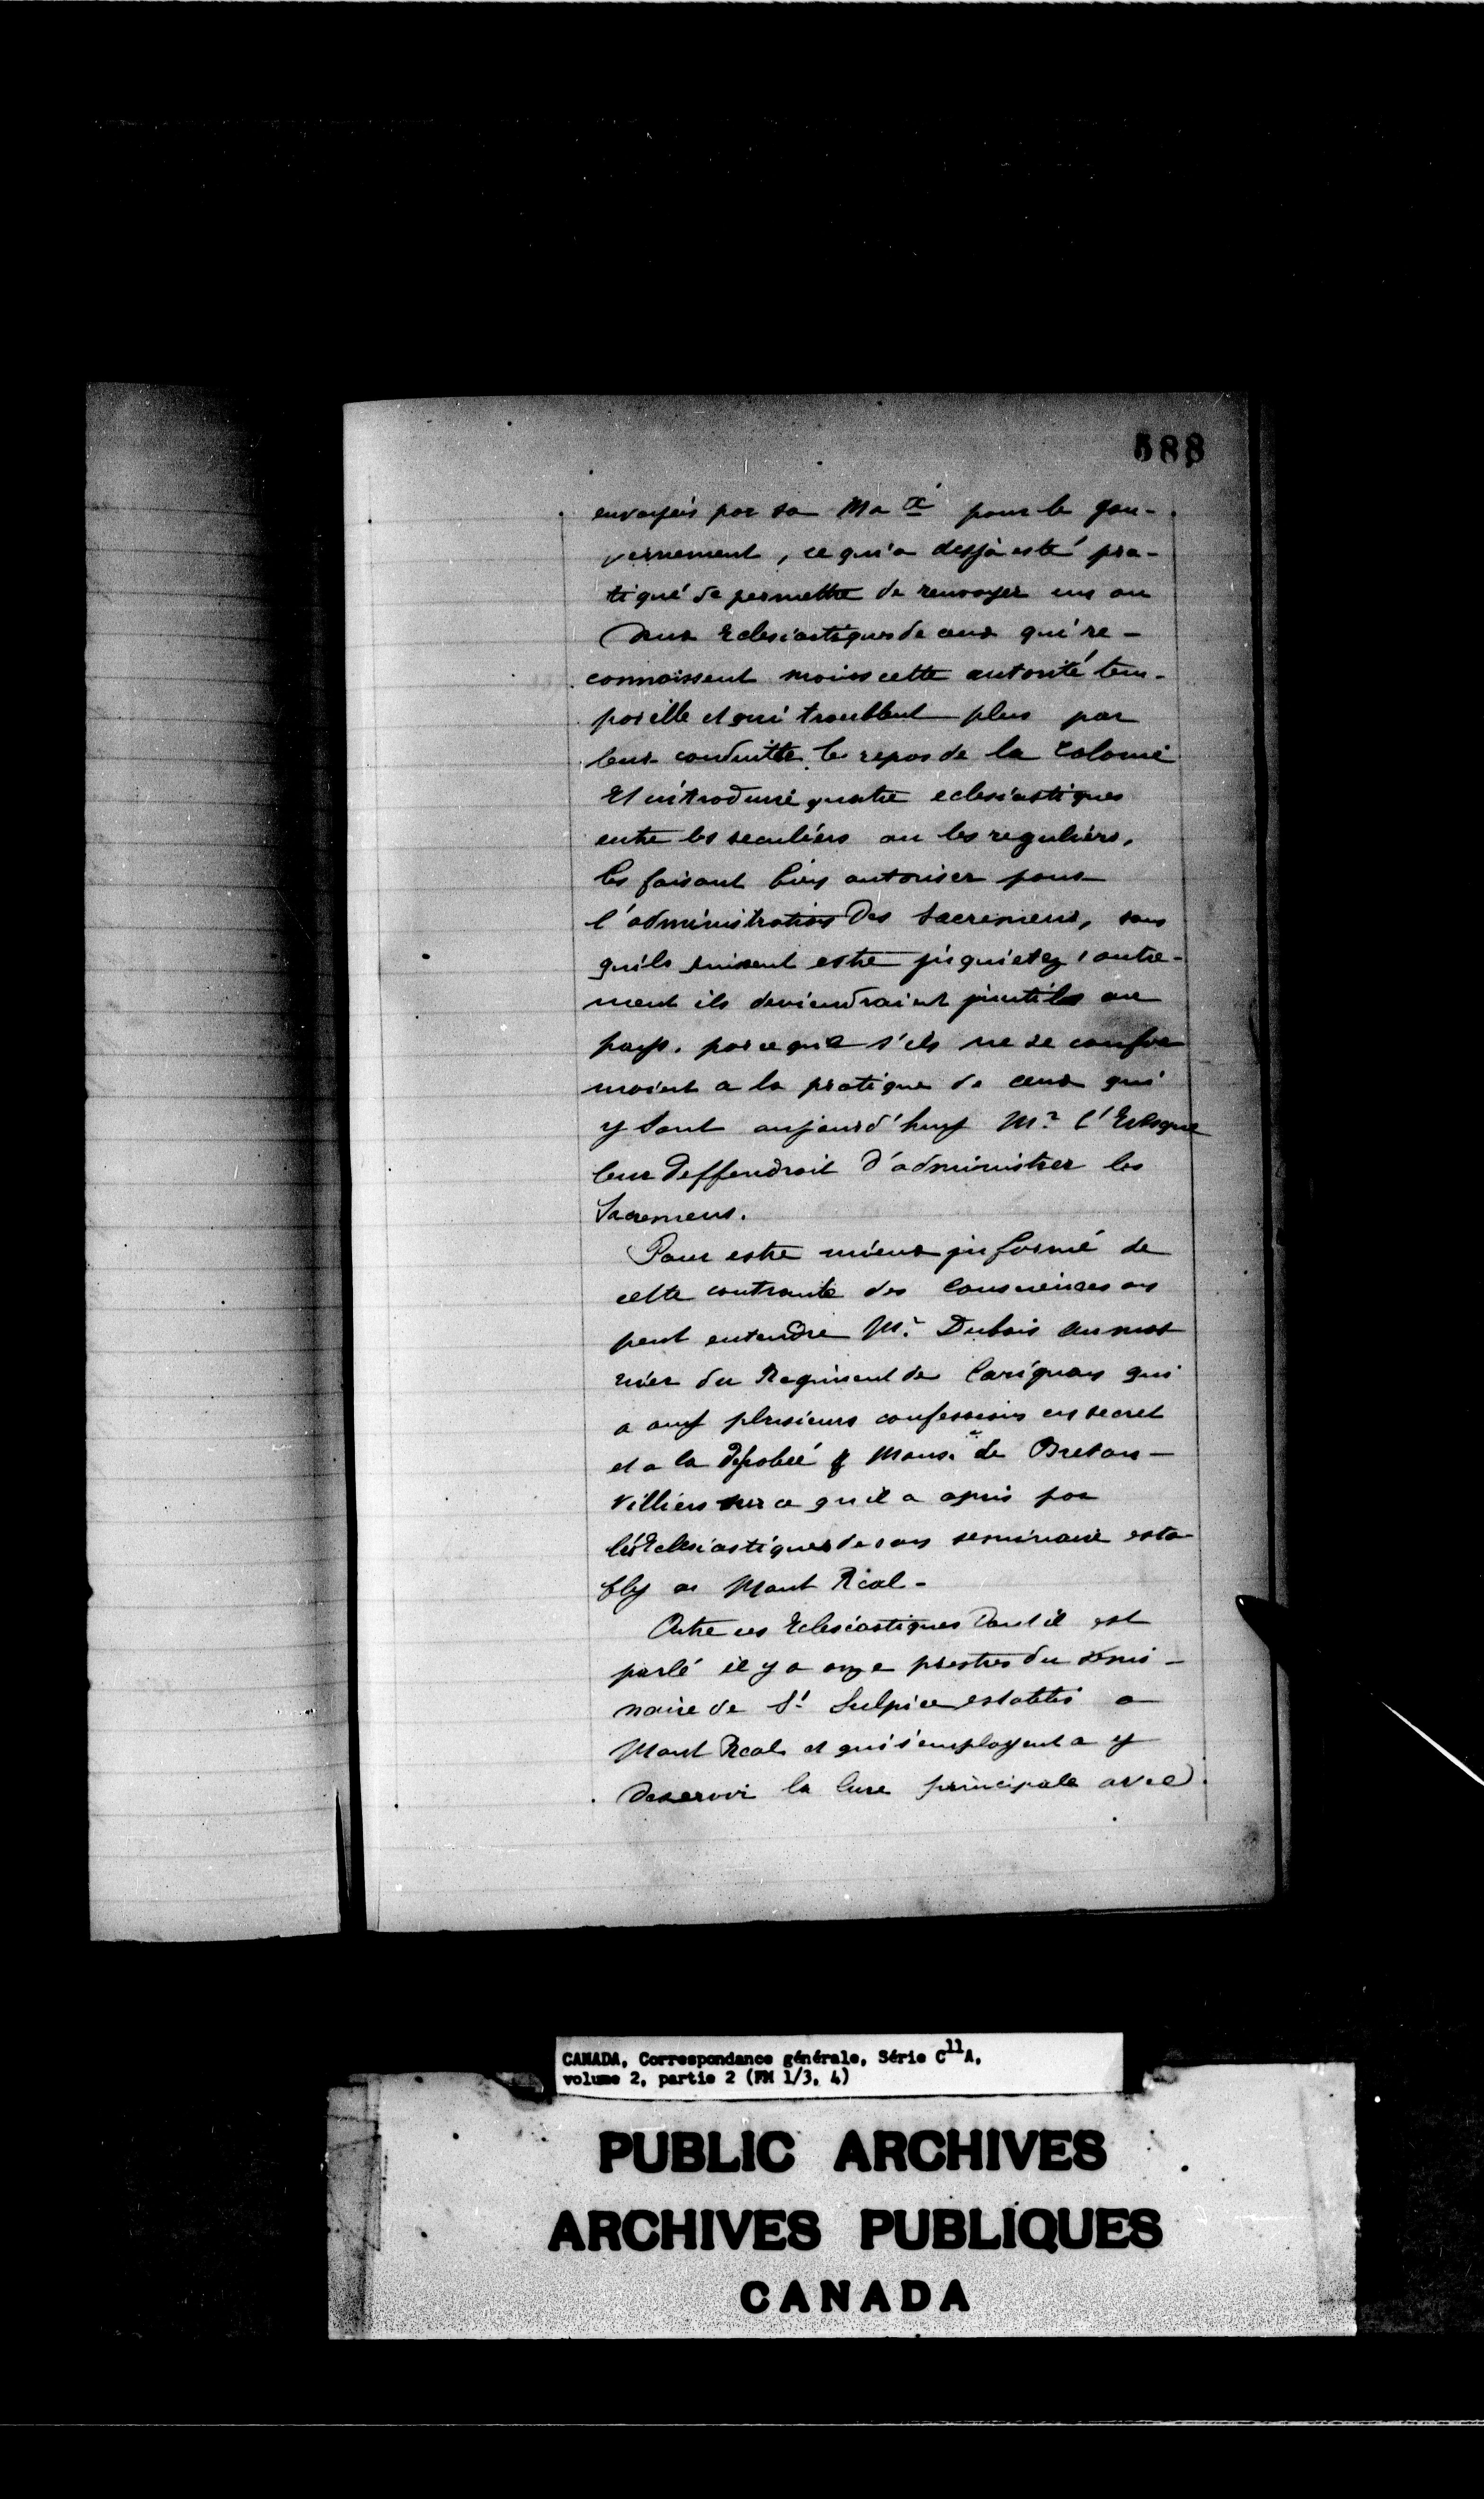 588
envoyés par sa Ma té pour le gou-
vernement, ce qui a desjà esté pra-
tiqué de permettre de renvoyer un ou
deux Eclesiastiques de ceux qui re-
connoissent moins cette autorité tem-
porelle et qui troublent plus par
leur conduitte le repos de la Colonie
Et introduire quatre eclesiastiques
entre les seculiers ou les reguliers,
les faisant bien autoriser pour
l'administration des Sacremens, sans
qu'ils puissent estre jnquietez, autre-
ment ils deviendroient jnutiles au
pays, parce que s'ils ne se confor
moient a la pratique de ceux qui
y sont aujourd'huy Mr. l'Evesque
leur deffendroit d'administrer les
Sacremens.
Pour estre mieux jnformé de
cette contrainte des Consciences on
peut entendre Mr. Dubois aumos
nier du Regiment de Carignan qui
a ouy plusieurs confessions en secret
et a la desrobée & Mons. de Breton-
villiers sur ce qu'il a apris par
les Eclesiastiques de son seminaire esta
bly au Mont Real-
Outre ces Eclesiastiques dont il est
parlé il y a onze prestres du semi-
naire de St Sulpice establis a
Mont Real et qui s'employent a y
deservir la Cure principale avec
CANADA, Correspondance générale, Série C11A,
volume 2, partie 2 (FM 1/3, 4)
PUBLIC ARCHIVES
ARCHIVES PUBLIQUES
CANADA